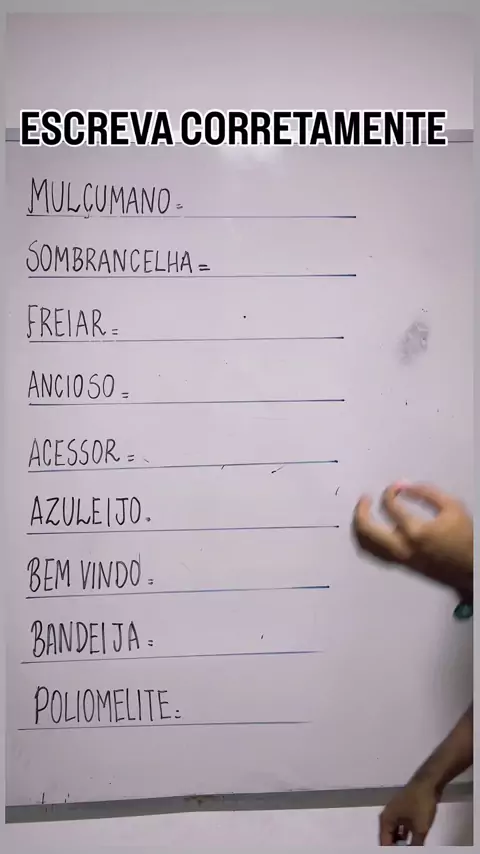 ESCREVA CORRETAMENTE
MULÇUMANO=
SOMBRANCELHA=
FREIAR=
ANCIOSO=
ACESSOR=
AZULEIJO.
BEM VINDO=
BANDEIJA=
POLIOMELITE: